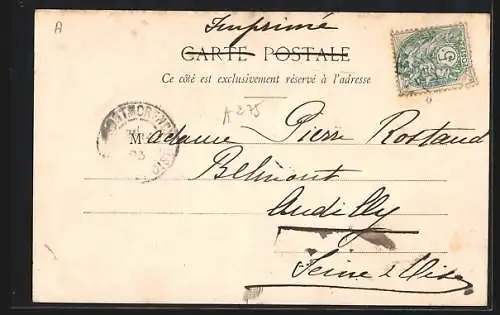 A
Imprimé
CARTE POSTALE
Ce côté est exclusivement réservé à l'adresse
A 275
Madame Pierre Rostand
Belmont
Andilly
Seine & Oise
5